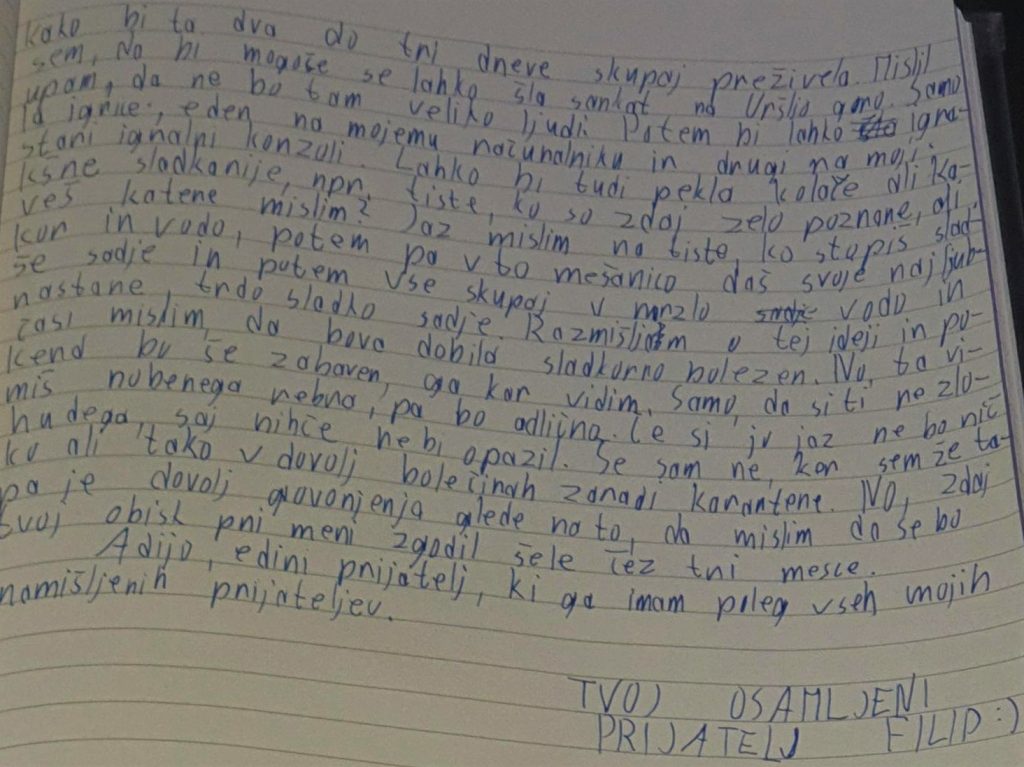 kako bi ta dva do tri dneve skupaj preživela. Mislil
sem, da bi mogoče se lahko šla sankat na Uršljo goro. Samo
upam, da ne bo tam veliko ljudi. Potem bi lahko igra-
la igrice, eden na mojemu računalniku in drugi na moji
stari igralni konzoli. Lahko bi tudi pekla kolače ali ka-
kšne sladkarije, npr. tiste, ko so zdaj zelo poznane, ali
veš katere mislim? Jaz mislim na tiste, ko stopiš slad-
kor in vodo, potem pa v to mešanico daš svoje najljub-
še sadje in potem vse skupaj v mrzlo vodo in
nastane, trdo sladko sadje. Razmišljam o tej ideji in po-
časi mislim, da bova dobila sladkorno bolezen. No, ta vi-
kend bo še zabaven, ga kar vidim. Samo, da si ti ne zlo-
miš nobenega rebra, pa bo odlično. Če si ju jaz ne bo nič
hudega, saj nihče ne bi opazil. Še sam ne, ker sem že ta-
ko ali tako v dovolj bolečinah zaradi karantene. No, zdaj
pa je dovolj govorjenja glede na to, da mislim da se bo
tvoj obisk pri meni zgodil šele čez tri mesce.
Adijo, edini prijatelj, ki ga imam poleg vseh mojih
namišljenih prijateljev.
TVOJ OSAMLJENI
PRIJATELJ FILIP :)